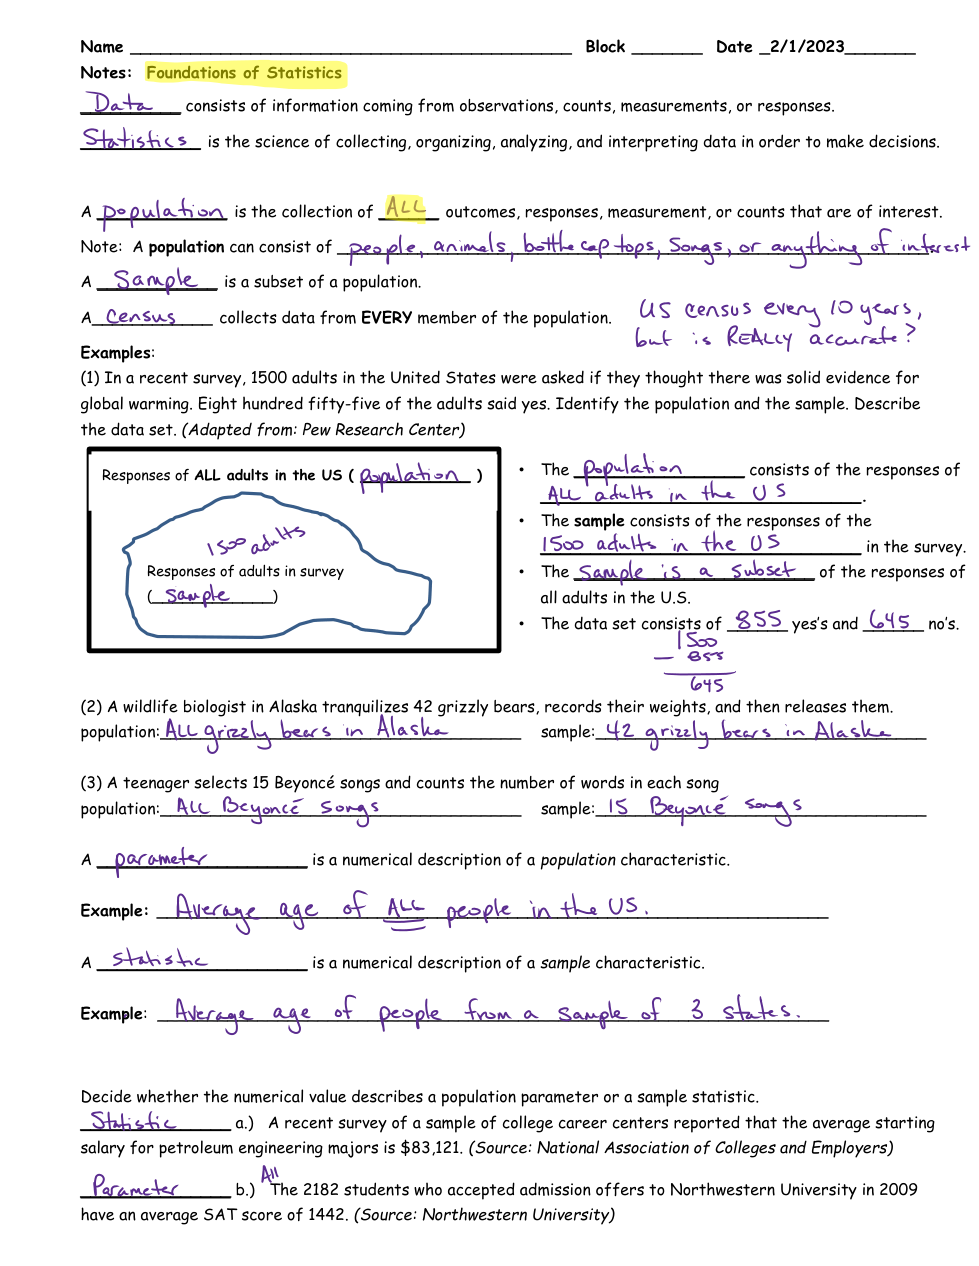 Name ____________ Block ______ Date _2/1/2023______
Notes: Foundations of Statistics
Data consists of information coming from observations, counts, measurements, or responses.
Statistics is the science of collecting, organizing, analyzing, and interpreting data in order to make decisions.
A population is the collection of ALL outcomes, responses, measurement, or counts that are of interest.
Note: A population can consist of people, animals, botthe cap tops, Songs, or anything of interest
A Sample is a subset of a population.
A Census collects data from EVERY member of the population.
US census every 10 years,
but is REALLY accurate?
Examples:
(1) In a recent survey, 1500 adults in the United States were asked if they thought there was solid evidence for
global warming. Eight hundred fifty-five of the adults said yes. Identify the population and the sample. Describe
the data set. (Adapted from: Pew Research Center)
Responses of ALL adults in the US ( population )
1500 adults
Responses of adults in survey
( sample )
• The population consists of the responses of
ALL adults in the US.
• The sample consists of the responses of the
1500 adults in the US in the survey.
• The sample is a subset of the responses of
all adults in the U.S.
• The data set consists of 855 yes's and 645 no's.
1500
- 855
645
(2) A wildlife biologist in Alaska tranquilizes 42 grizzly bears, records their weights, and then releases them.
population: ALL grizzly bears in Alaska sample: 42 grizzly bears in Alaska
(3) A teenager selects 15 Beyoncé songs and counts the number of words in each song
population: ALL Beyoncé songs sample: 15 Beyoncé songs
A parameter is a numerical description of a population characteristic.
Example: Average age of ALL people in the US.
A statistic is a numerical description of a sample characteristic.
Example: Average age of people from a sample of 3 states.
Decide whether the numerical value describes a population parameter or a sample statistic.
Statistic a.) A recent survey of a sample of college career centers reported that the average starting
salary for petroleum engineering majors is $83,121. (Source: National Association of Colleges and Employers)
All
Parameter b.) The 2182 students who accepted admission offers to Northwestern University in 2009
have an average SAT score of 1442. (Source: Northwestern University)